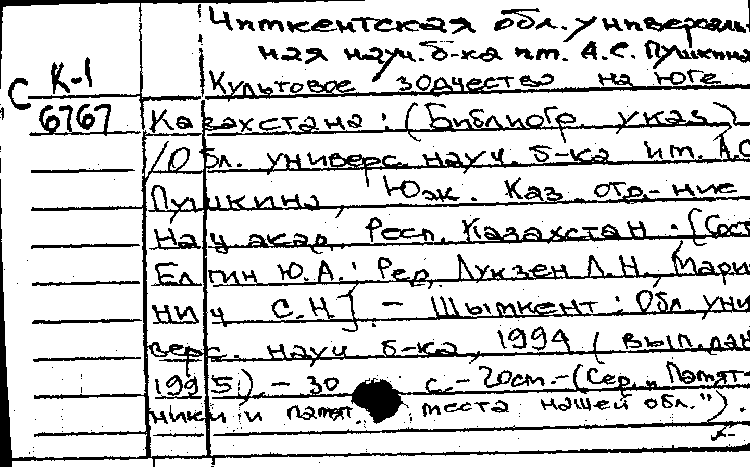 Чимкентская обл. универсаль-
ная науч. б-ка им. А.С. Пушкина
С К-1 Культовое зодчество на юге
6767 Казахстана: (Библиогр. указ.)
/Обл. универс. науч. б-ка им. А.С.
Пушкина, Юж. Каз. отд-ние
Нац акад. Респ. Казахстан; [Сост.
Елгин Ю.А.; Ред. Лукзен Л.Н., Мари-
нич С.Н]. - Шымкент: Обл уни
верс. науч б-ка, 1994 (вып. дан
1995). - 30 с. - 20см. - (Сер. "Памят-
ники и памят. места нашей обл.").